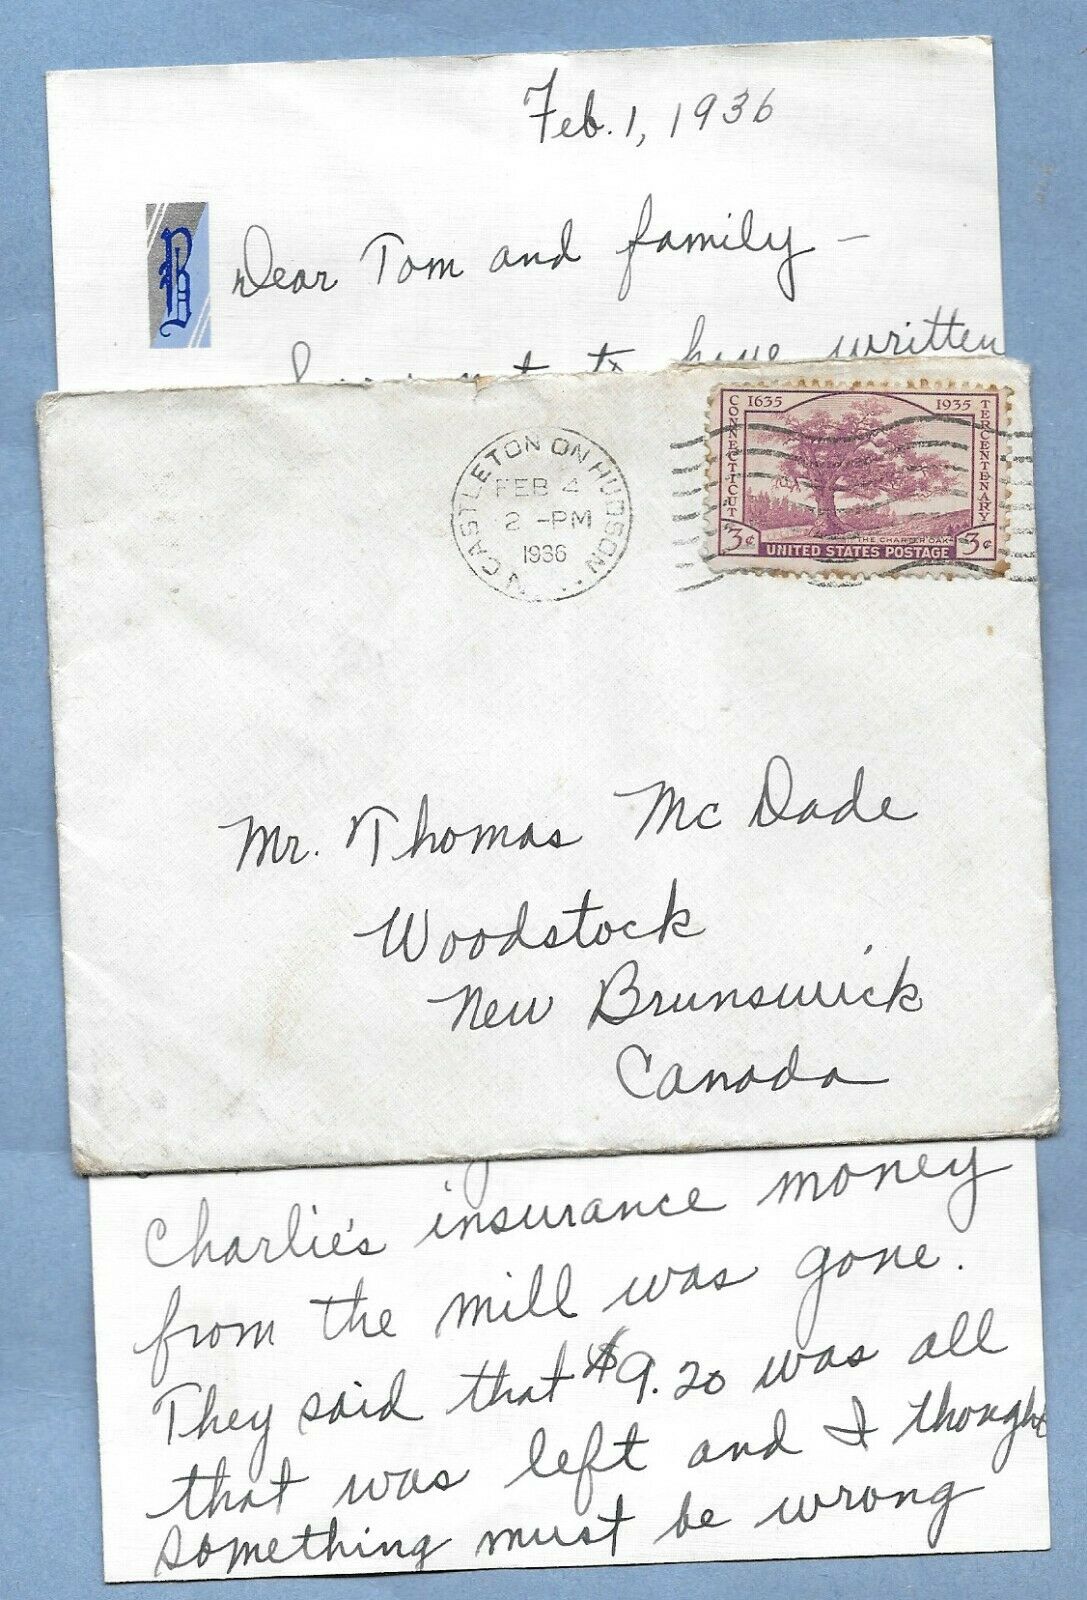 Feb. 1, 1936
B
Dear Tom and family —
have written
CASTLETON ON HUDSON
FEB 4
2 -PM
1936
1635 1935
CONNECTICUT
TERCENTENARY
THE CHARTER OAK
3¢ UNITED STATES POSTAGE 3¢
Mr. Thomas McDade
Woodstock
New Brunswick
Canada
Charlie's insurance money
from the mill was gone.
They said that $9.20 was all
that was left and I thought
something must be wrong